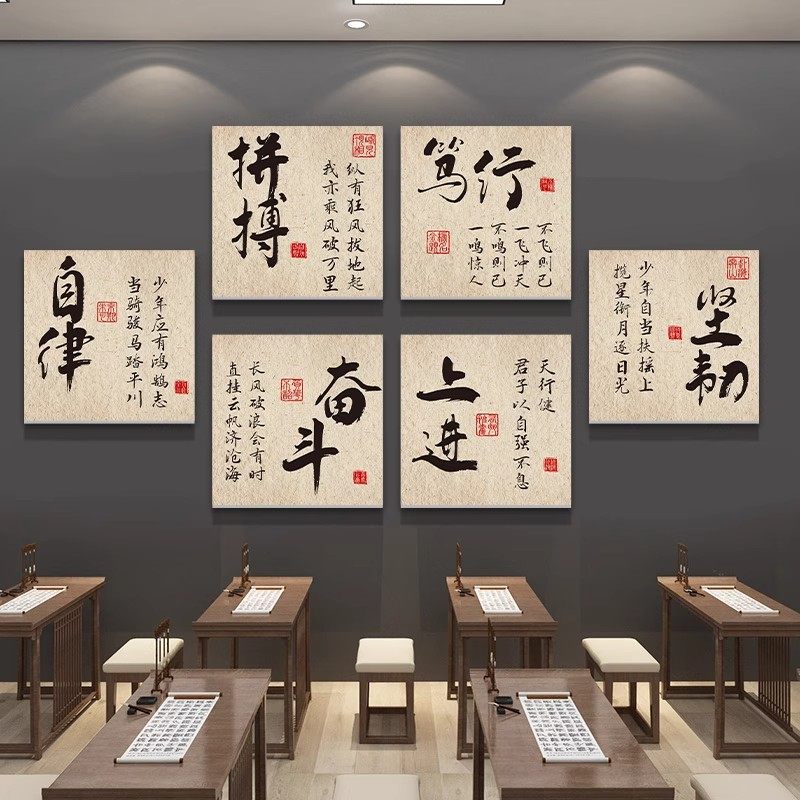 自律
少年应有鸿鹄志
当骑骏马踏平川
拼搏
纵有狂风拔地起
我亦乘风破万里
笃行
不飞则已
一飞冲天
不鸣则已
一鸣惊人
奋斗
长风破浪会有时
直挂云帆济沧海
上进
天行健
君子以自强不息
坚韧
少年自当扶摇上
揽星衔月逐日光